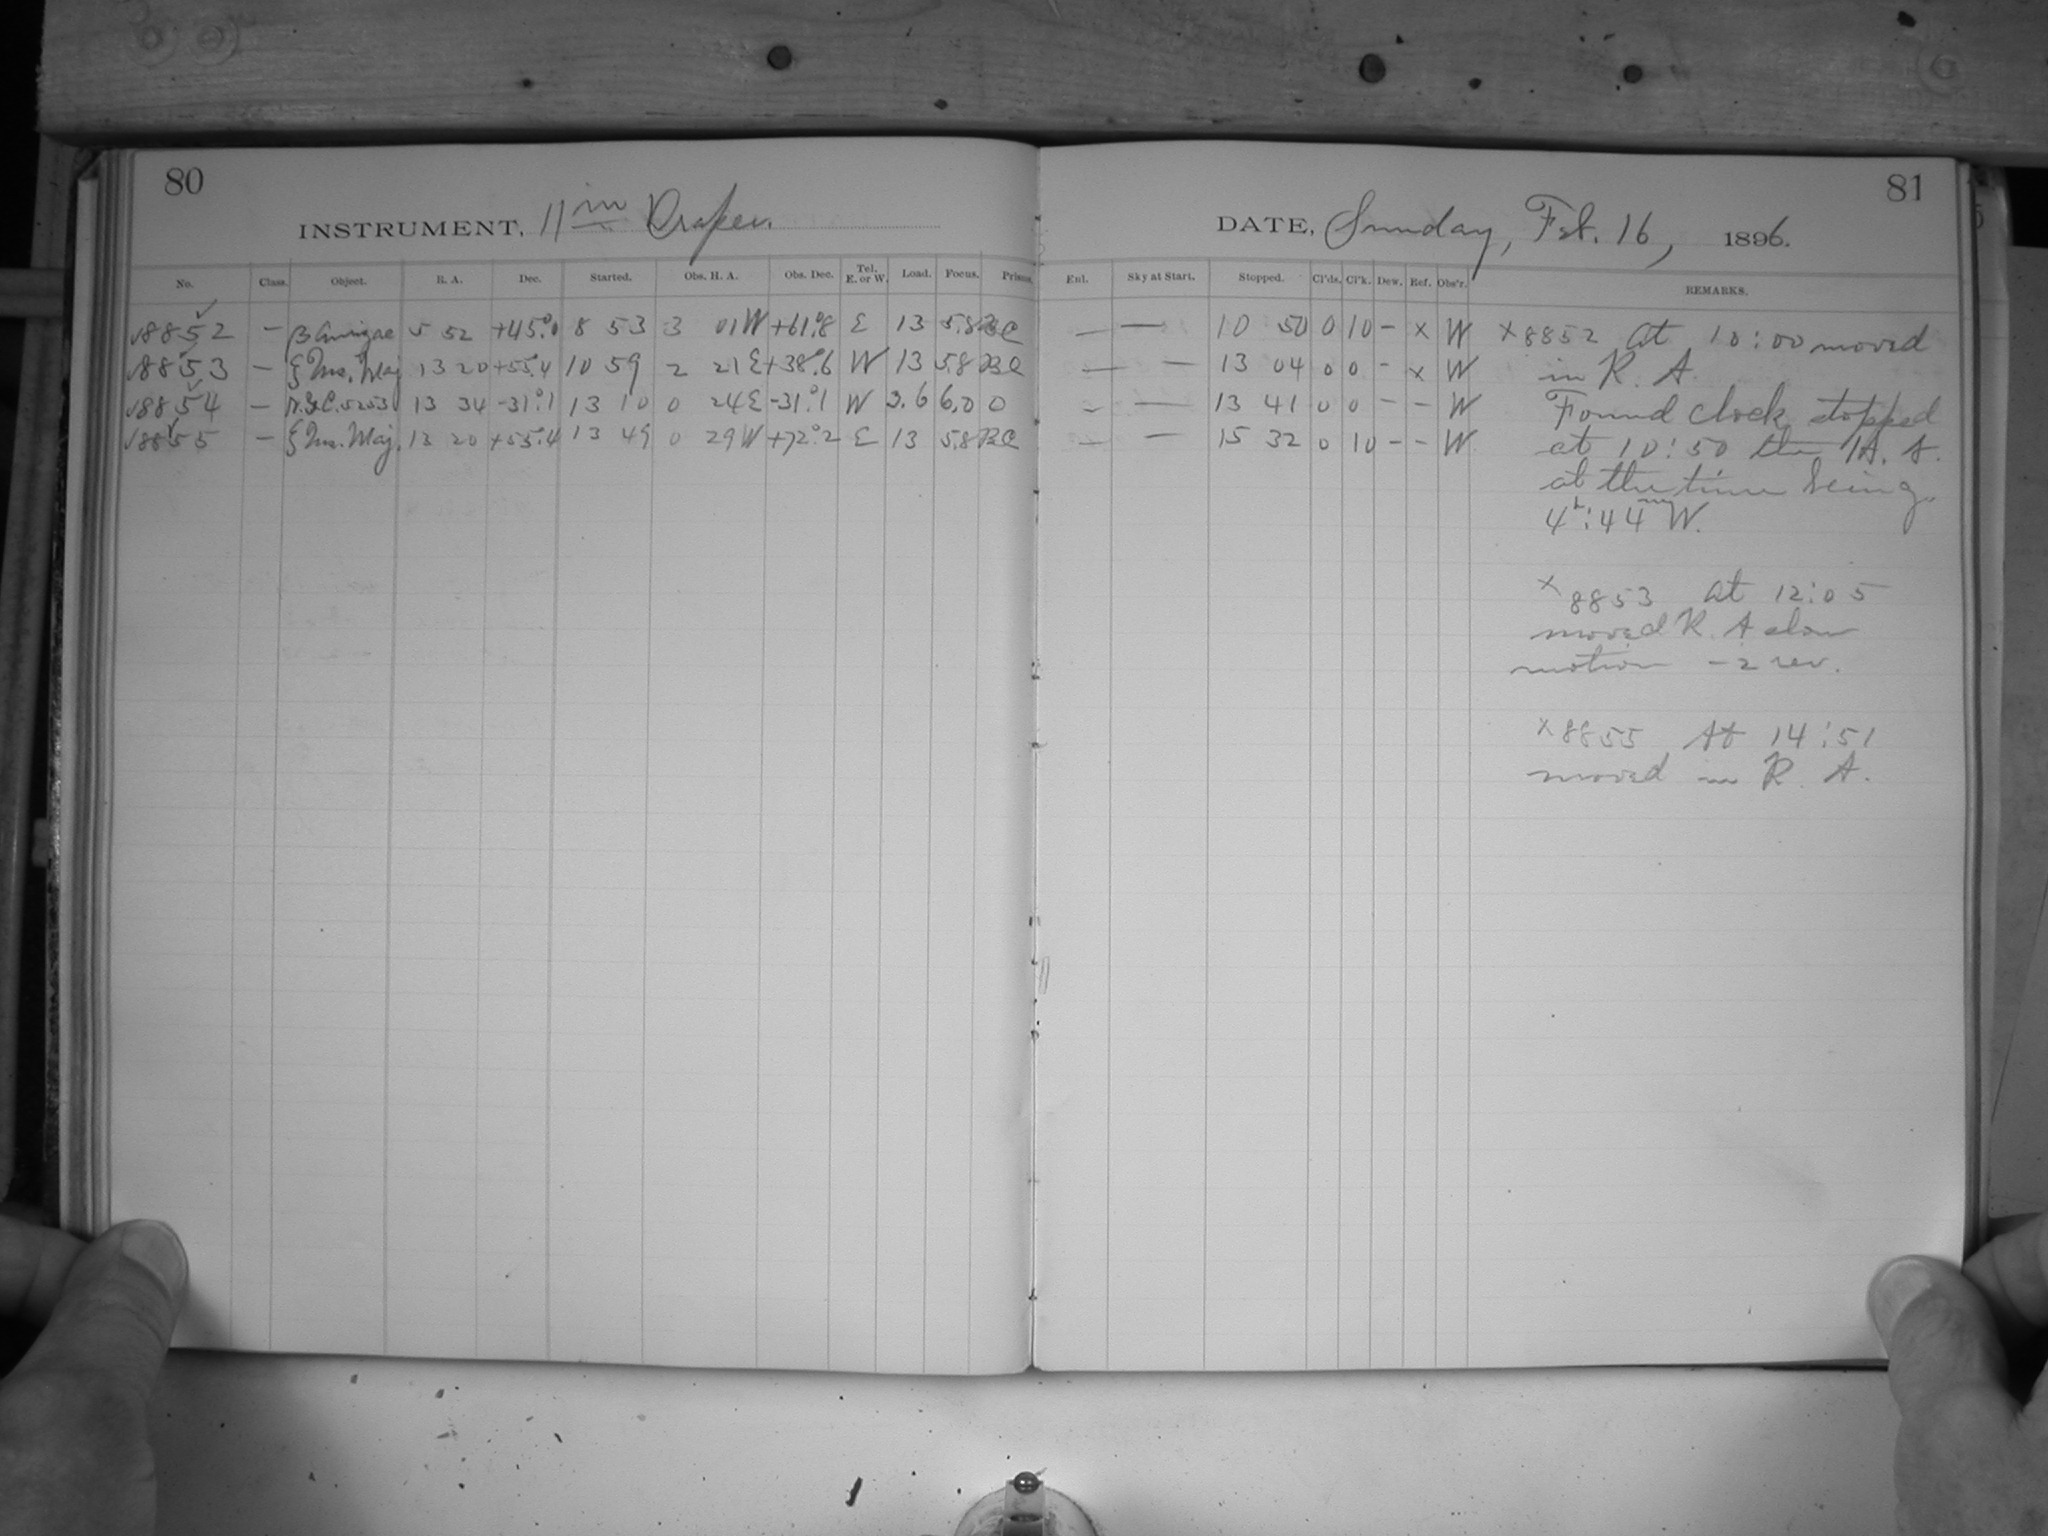 80
INSTRUMENT, 11 in Draper.
No. Class. Object. R. A. Dec. Started. Obs. H. A. Obs. Dec. Tel. E. or W. Load. Focus. Prisms.
√8852 – β Aurigae 5 52 +45°.0 8 53 3 01W +61°.8 E 13 5.8 BC
√8853 – ζ Urs. Maj 13 20 +55.4 10 59 2 21E +38°.6 W 13 5.8 BC
√8854 – N.G.C. 5253 13 34 -31°.1 13 10 0 24E -31°.1 W 3.6 6.0 0
√8855 – ζ Urs. Maj. 13 20 +55.4 13 49 0 29W +72°.2 E 13 5.8 BC
81
DATE, Sunday, Feb. 16, 1896.
Enl. Sky at Start. Stopped. Cl'ds. Cl'k. Dew. Ref. Obs'r. REMARKS.
– – 10 50 0 10 – x W
– – 13 04 0 0 – x W
– – 13 41 0 0 – – W
– – 15 32 0 10 – – W
x8852 At 10:00 moved
in R. A.
Found clock stopped
at 10:50 the H. A.
at the time being
4h:44m W.
x8853 At 12:05
moved R. A slow
motion -2 rev.
x8855 At 14:51
moved in R. A.